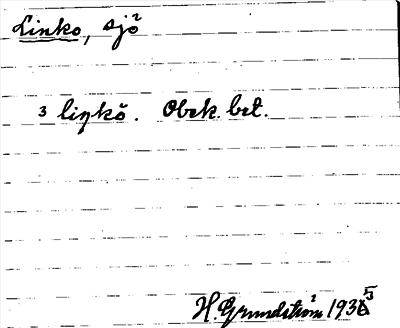 Linko, sjö²
3 liŋkŏ. Obek. bet.
H. Grundström² 1935